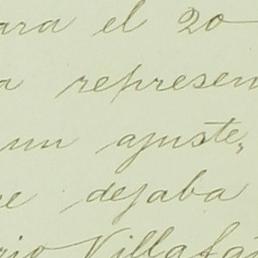 ara el 20
a represen
un ajuste,
e dejaba
rio Villafá